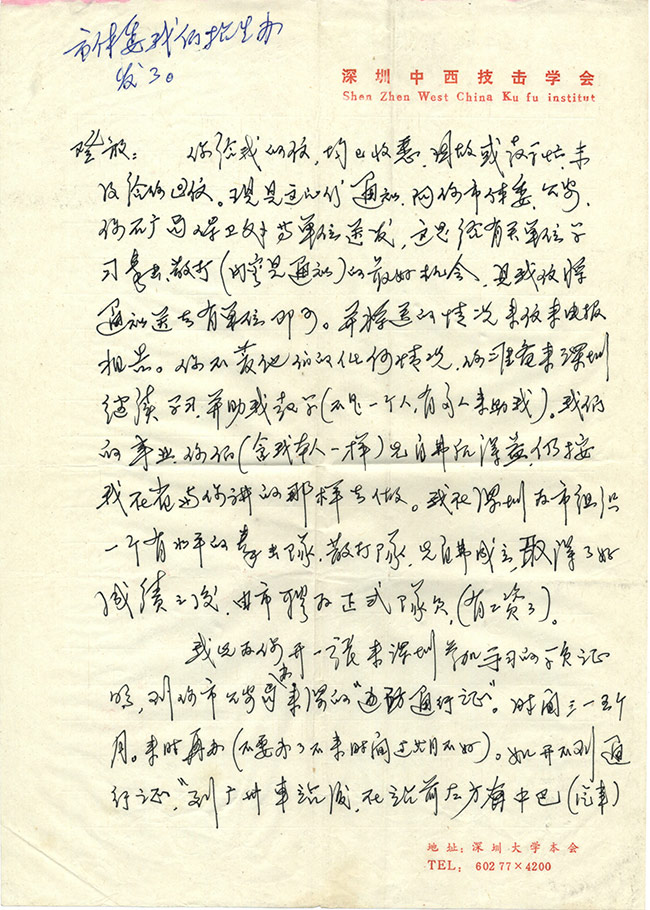 市体委我们招生办
发了。
深圳中西技击学会
Shen Zhen West China Ku fu institut
你给我的信，均已收悉，因故或教学忙，未
及给你回信。现是这几份通知，网你市体委、公安、
你石厂局保卫处等单位送发，这是给有关单位学
习拳击散打(内容见通知)的最好机会，见我信将
通知送去有单位即可。并将送的情况来信来电报
相告。你不管他们的任何情况，你准备来深圳
继续学习，并助我教学(不是一个人，有多人来助我)。我们
的事业，你们(含我本人一样)先自费后深造，仍按
我在省与你讲的那样去做。我在深圳为市组织
一个有水平的拳击队、散打队，先自费成立，取得了好
成绩之后，由市聘为正式队员，(有工资了)。
我先为你开一张来深圳参加学习的学员证
明，到你市公安局办来深的“边防通行证”。时间三一五个
月。来时再办(不要办了不来时间过期不好)。如开不到通
行证，”到广州车站后，在站前左方有中巴(汽车)
地址：深圳大学本会
TEL: 60277×4200